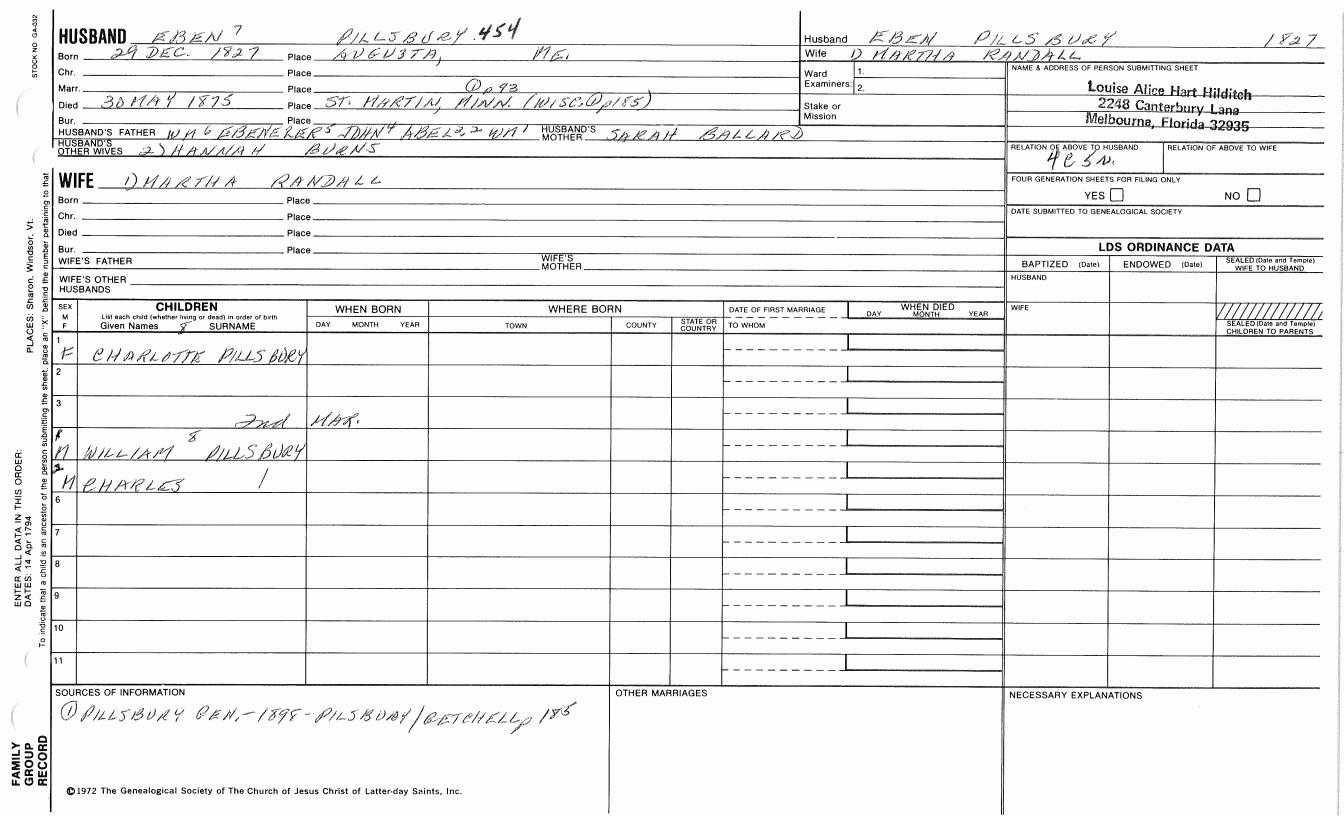 STOCK NO GA-032
HUSBAND EBEN 7 PILLSBURY 454
Born 29 DEC. 1827 Place AUGUSTA, ME.
Chr. Place
Marr. Place ① p 93
Died 30 MAY 1875 Place ST. MARTIN, MINN. (WISC. ① p 185)
Bur. Place
HUSBAND'S FATHER WM 6 EBENEZER 5 JOHN 4 ABEL 3, 2 WM 1 HUSBAND'S MOTHER SARAH BALLARD
HUSBAND'S OTHER WIVES 2) HANNAH BURNS
WIFE 1) MARTHA RANDALL
Born Place
Chr. Place
Died Place
Bur. Place
WIFE'S FATHER WIFE'S MOTHER
WIFE'S OTHER HUSBANDS
Husband EBEN PILLSBURY 1827
Wife 1) MARTHA RANDALL
Ward Examiners: 1. 2.
Stake or Mission
NAME & ADDRESS OF PERSON SUBMITTING SHEET
Louise Alice Hart Hilditch
2248 Canterbury Lane
Melbourne, Florida 32935
RELATION OF ABOVE TO HUSBAND RELATION OF ABOVE TO WIFE
FOUR GENERATION SHEETS FOR FILING ONLY
YES NO
DATE SUBMITTED TO GENEALOGICAL SOCIETY
LDS ORDINANCE DATA
BAPTIZED (Date) ENDOWED (Date) SEALED (Date and Temple) WIFE TO HUSBAND
HUSBAND
WIFE
SEALED (Date and Temple) CHILDREN TO PARENTS
SEX M F
CHILDREN
List each child (whether living or dead) in order of birth
Given Names 8 SURNAME
WHEN BORN
DAY MONTH YEAR
WHERE BORN
TOWN COUNTY STATE OR COUNTRY
DATE OF FIRST MARRIAGE
TO WHOM
WHEN DIED
DAY MONTH YEAR
1
F CHARLOTTE PILLSBURY
2
3
2nd MAR.
1
M WILLIAM 8 PILLSBURY
2
M CHARLES
6
7
8
9
10
11
SOURCES OF INFORMATION
① PILLSBURY GEN. - 1898 - PILSBURY/GETCHELL p 185
OTHER MARRIAGES
NECESSARY EXPLANATIONS
©1972 The Genealogical Society of The Church of Jesus Christ of Latter-day Saints, Inc.
FAMILY GROUP RECORD
ENTER ALL DATA IN THIS ORDER:
DATES: 14 Apr 1794
PLACES: Sharon, Windsor, Vt.
To indicate that a child is an ancestor of the person submitting the sheet, place an "X" behind the number pertaining to that